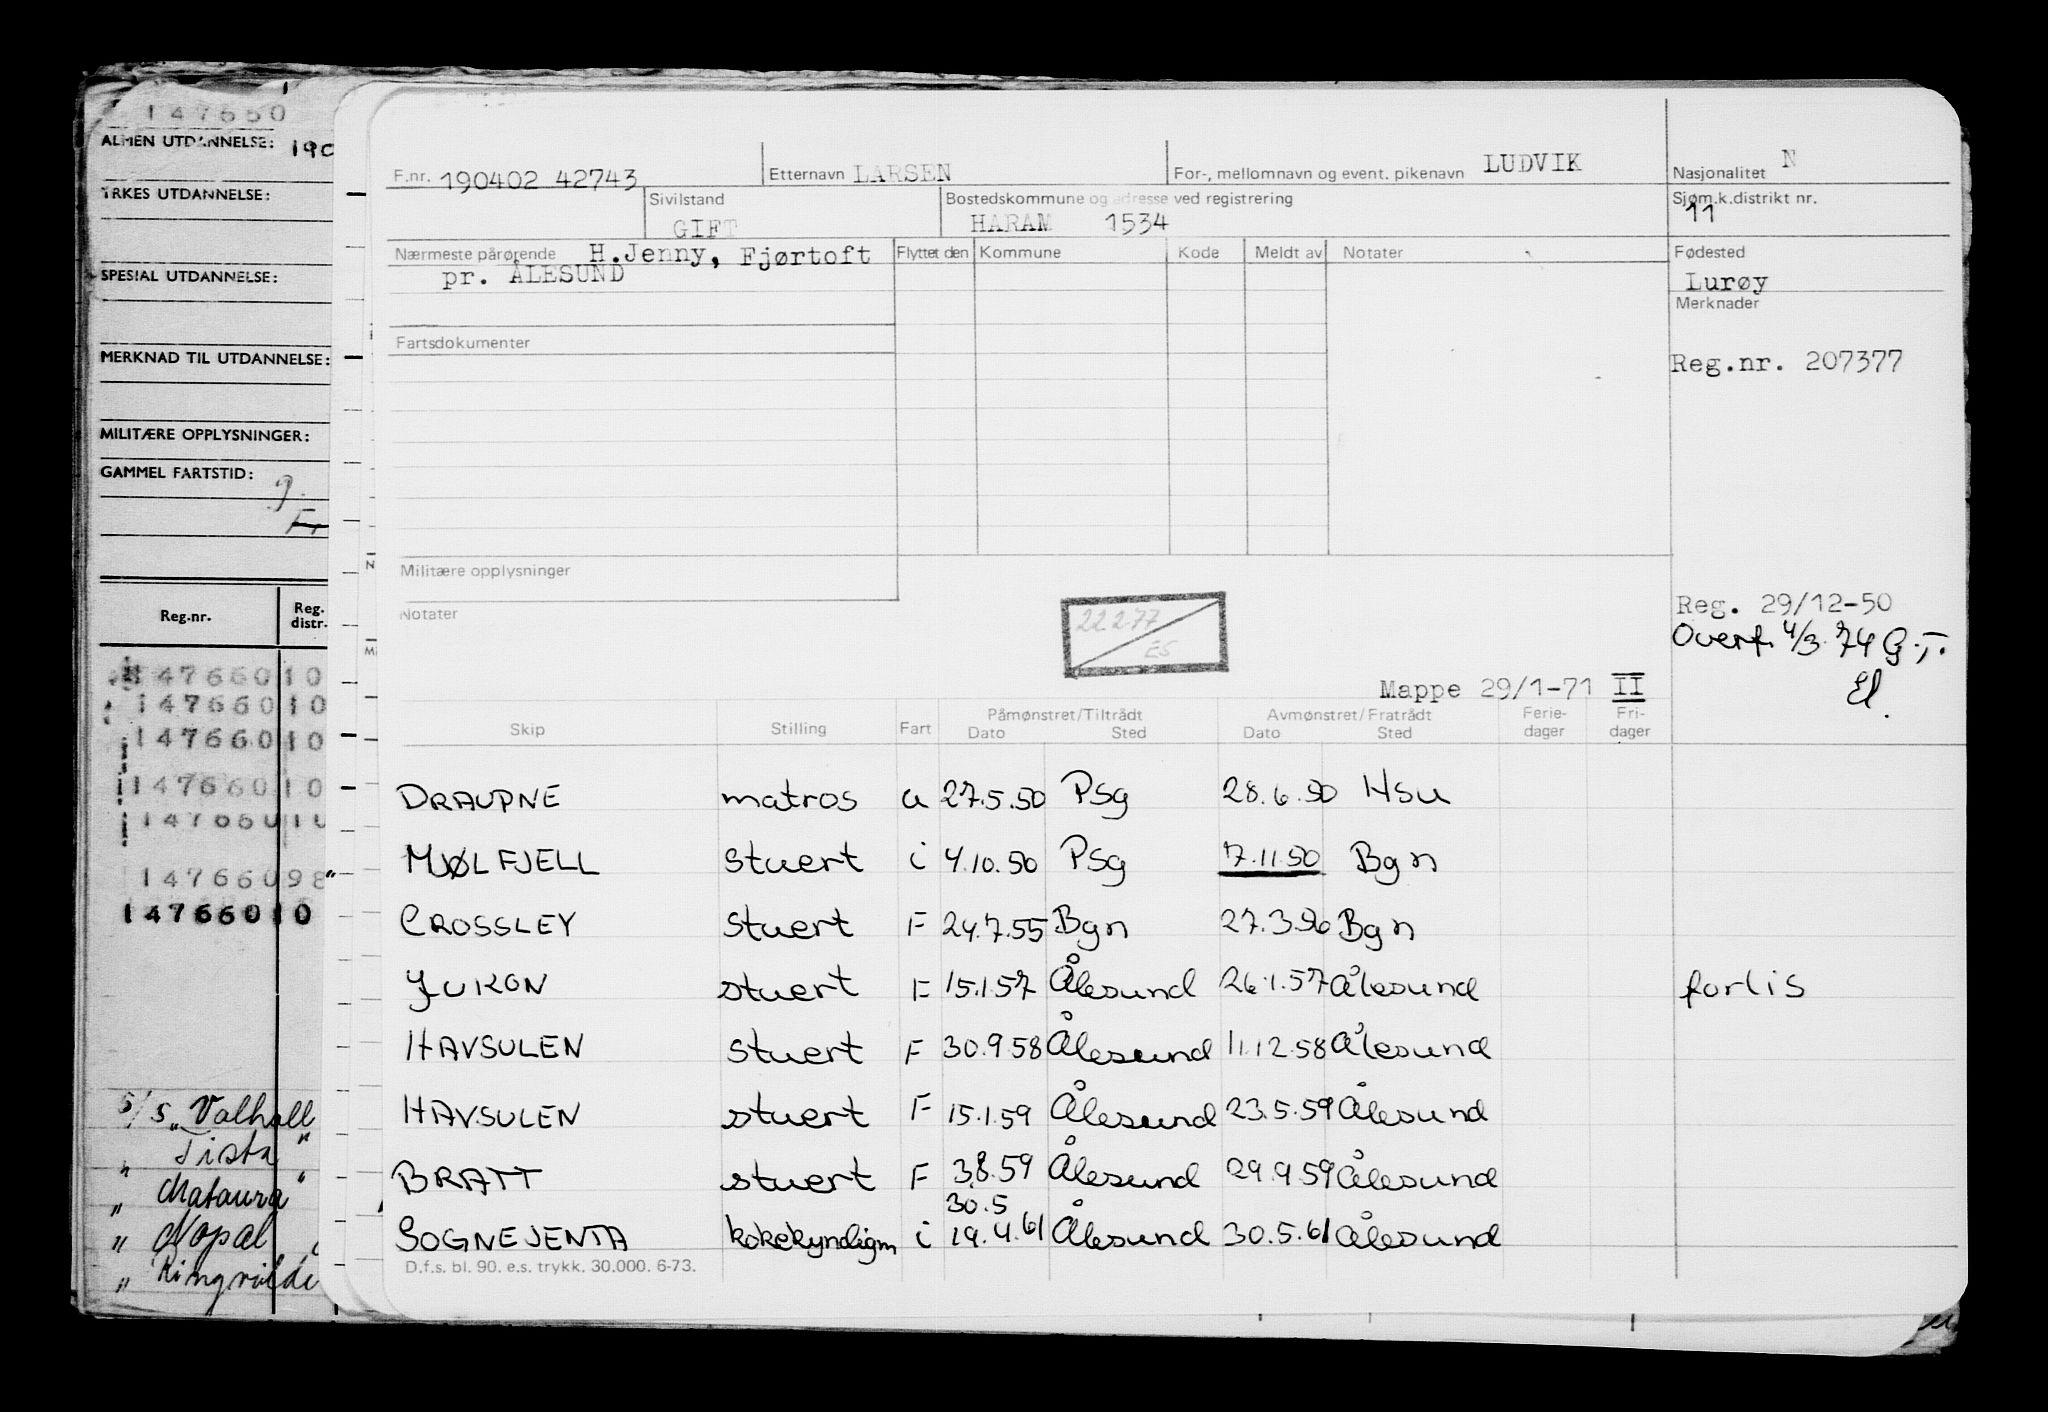 147660
ALMEN UTDANNELSE: 190
YRKES UTDANNELSE:
SPESIAL UTDANNELSE:
MERKNAD TIL UTDANNELSE:
MILITÆRE OPPLYSNINGER:
GAMMEL FARTSTID:
g.
Reg.nr. Reg. distr.
147660 10
147660 10
147660 10
147660 10
147660 10
147660 98
147660 10
S/S „Valhall
„ Tista"
„ Mataura"
„ Nopal
„ Ringvilde
F.nr. 190402 42743 Etternavn LARSEN For-, mellomnavn og event. pikenavn LUDVIK Nasjonalitet N
Sivilstand GIFT Bostedskommune og adresse ved registrering HARAM 1534 Sjøm.k.distrikt nr. 11
Nærmeste pårørende H.Jenny, Fjørtoft Flyttet den Kommune Kode Meldt av Notater Fødested
pr. ÅLESUND Lurøy
Merknader
Fartsdokumenter
Reg.nr. 207377
Militære opplysninger
Notater
22277
ES
Reg. 29/12-50
Overf. 4/3. 74 G.-,-.
El.
Mappe 29/1-71 II
Skip Stilling Fart Påmønstret/Tiltrådt Dato Sted Avmønstret/Fratrådt Dato Sted Ferie-dager Fri-dager
DRAUPNE matros u 27.5.50 Psg 28.6.50 Hsu
MJØLFJELL stuert i 4.10.50 Psg 7.11.50 Bgn
CROSSLEY stuert F 24.7.55 Bgn 27.3.56 Bgn
YUKON stuert F 15.1.57 Ålesund 26.1.57 Ålesund forlis
HAVSULEN stuert F 30.9.58 Ålesund 11.12.58 Ålesund
HAVSULEN stuert F 15.1.59 Ålesund 23.5.59 Ålesund
BRATT stuert F 3.8.59 Ålesund 29.9.59 Ålesund
30.5
SOGNEJENTA kokekyndigm i 19.4.61 Ålesund 30.5.61 Ålesund
D.f.s. bl. 90. e.s. trykk. 30.000. 6-73.